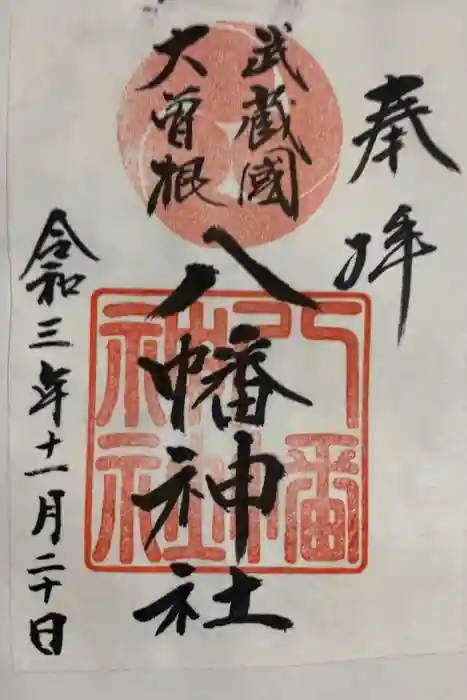 奉拝
武蔵國
大曽根
八幡神社
八幡神社
令和三年十一月二十日